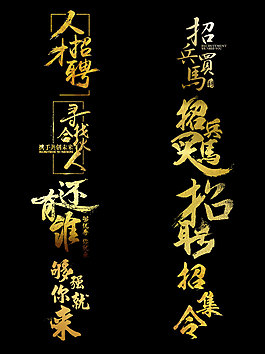 人才招聘
招兵買馬
寻找合伙人
携手共创未来
招兵买馬
还有谁
够优秀 你就来
招聘
够强你就来
招集令